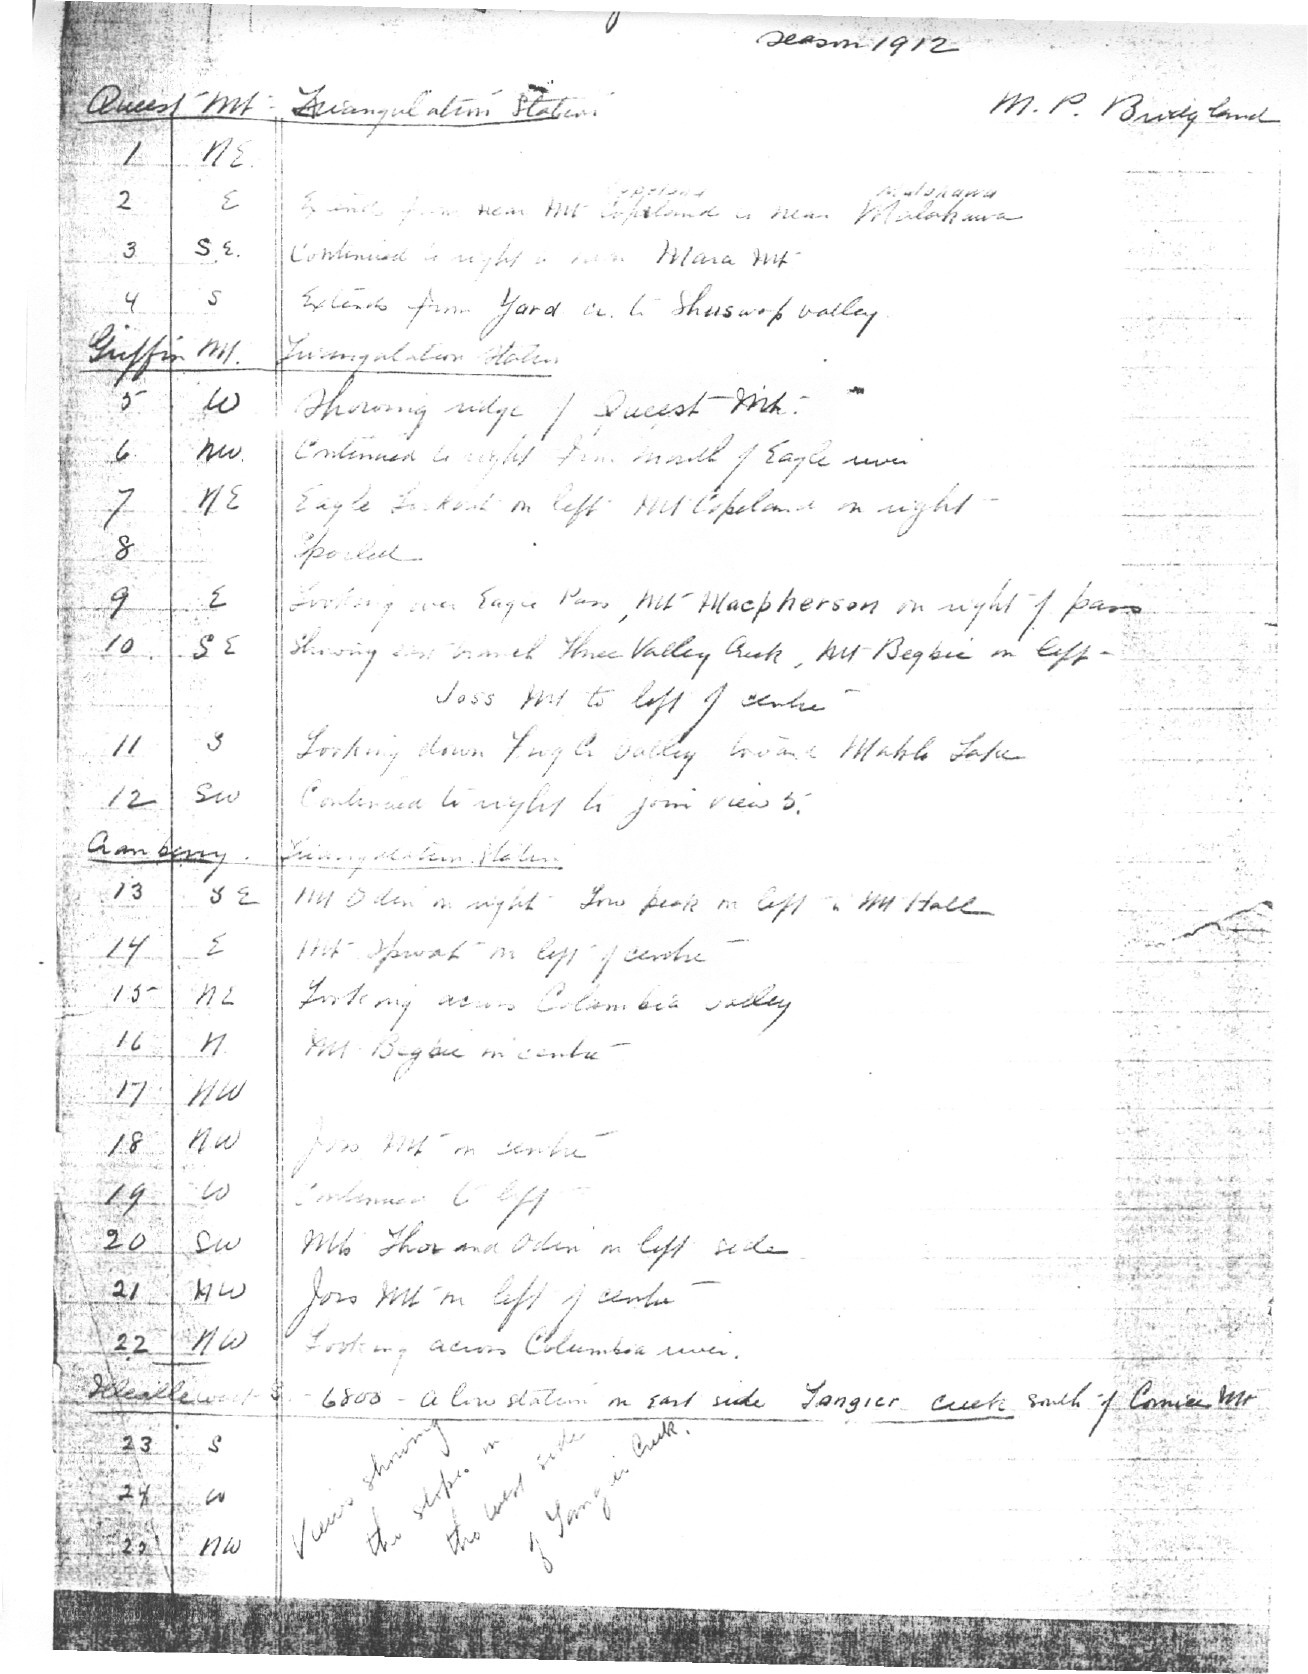 season 1912
Queest Mt - Triangulation Station M. P. Bridgland
1 NE.
Copeland Malakwa
2 E Extends from near Mt Copeland to near Malakwa
3 S.E. Continued to right to near Mara Mt
4 S Extends from Yard Cr. to Shuswap valley.
Griffin Mt. Triangulation Station
5 W Showing ridge of Queest Mt.
6 NW. Continued to right from mouth of Eagle river
7 NE Eagle Lookout on left Mt Copeland on right
8 Spoiled
9 E Looking over Eagle Pass, Mt Macpherson on right of pass
10 SE Showing east branch Three Valley Creek, Mt Begbie on left
Joss Mt to left of centre
11 S Looking down valley toward Mable Lake
12 SW Continued to right to join view 5.
Cranberry. Triangulation Station
13 SE Mt Odin on right Low peak on left is Mt Hall
14 E Mt Sproat on left of centre
15 NE Looking across Columbia valley
16 N Mt Begbie in centre
17 NW
18 NW Joss Mt in centre
19 W Continued to left
20 SW Mts Thor and Odin on left side
21 NW Joss Mt on left of centre
22 NW Looking across Columbia river.
Illecillewaet S. - 6800 - a low station on East side Tangier creek south of Comice Mt
23 S
24 W
25 NW
Views showing
the slopes on
the west side
of Tangier Creek.